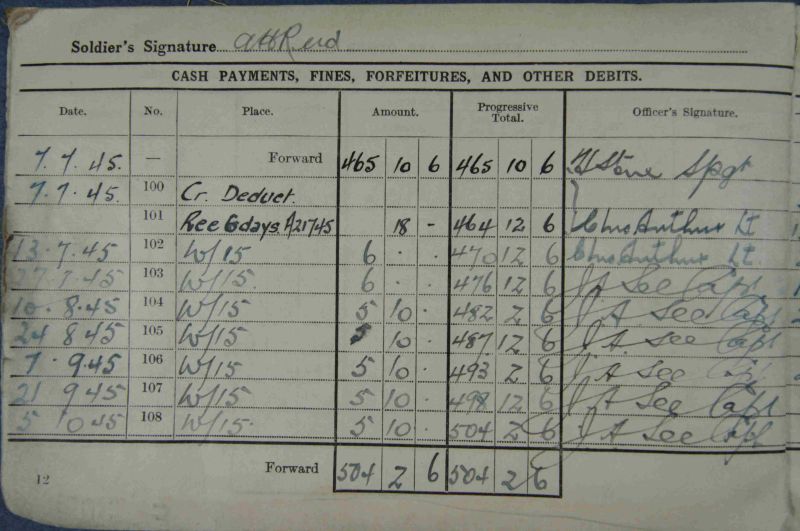 Soldier's Signature A H Reid
CASH PAYMENTS, FINES, FORFEITURES, AND OTHER DEBITS.
Date. No. Place. Amount. Progressive Total. Officer's Signature.
7.7.45. — Forward 465 10 6 465 10 6 Stone
7.7.45. 100 Cr. Deduct.
101 Ree 6 days A21745 18 - 464 12 6 Lt
13.7.45 102 W/15 6 . . 470 12 6 Lt.
27.7.45 103 W/15. 6 . . 476 12 6 J A See Capt
10.8.45 104 W/15 5 10 . 482 2 6 J A See Capt
24 8 45 105 W/15 5 10 . 487 12 6 J A See Capt
7.9 45 106 W/15 5 10 . 493 2 6 J A See Capt
21 9 45 107 W/15 5 10 . 498 12 6 J A See Capt
5 10 45 108 W/15. 5 10 . 504 2 6 J A See Capt
Forward 504 2 6 504 2 6
12